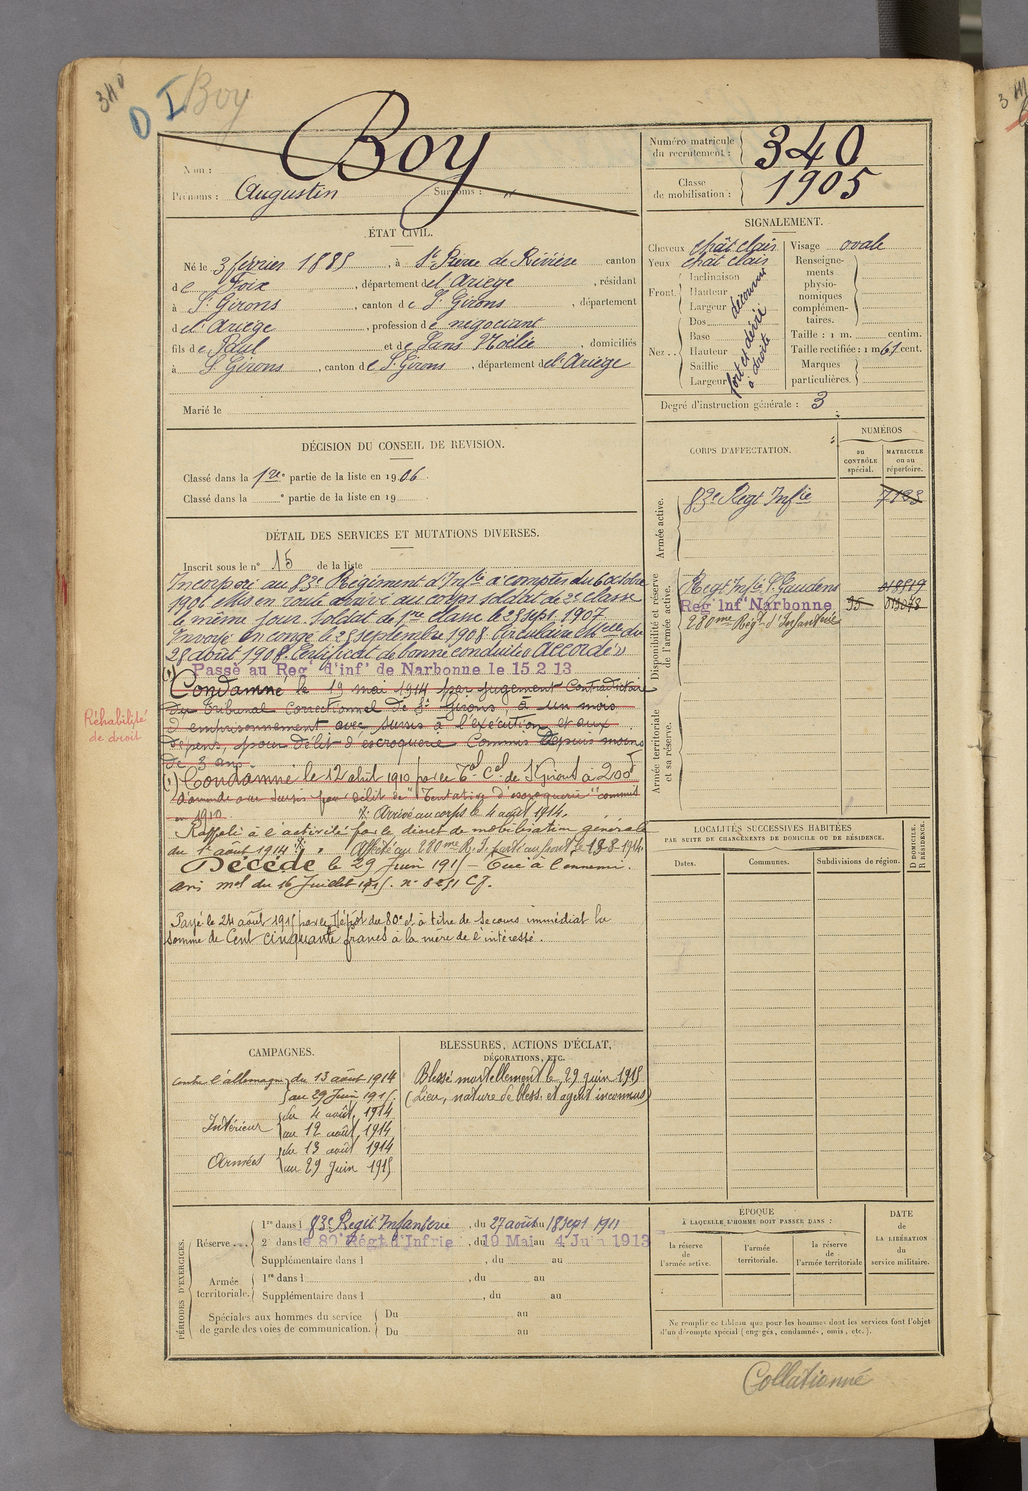 340
D I Boy
Nom : Boy
Prénoms : Augustin Surnoms : "
Numéro matricule du recrutement : 340
Classe de mobilisation : 1905
ÉTAT CIVIL.
Né le 3 février 1885, à St Pierre de Rivière canton
de Foix, département de l'Ariège, résidant
à St Girons, canton de St Girons, département
de l'Ariège, profession de négociant
fils de Paul et de Sans Noélie, domiciliés
à St Girons, canton de St Girons, département de l'Ariège
Marié le
DÉCISION DU CONSEIL DE REVISION.
Classé dans la 1re partie de la liste en 1906.
Classé dans la e partie de la liste en 19
DÉTAIL DES SERVICES ET MUTATIONS DIVERSES.
Inscrit sous le n° 15 de la liste
Incorporé au 83e Régiment d'Infie à compter du 6 octobre
1906 Mis en route arrivé au corps soldat de 2e classe
le même jour. Soldat de 1re classe le 25 sept. 1907
Envoyé en congé le 25 septembre 1908. Circulaire Mlle du
28 août 1908. Certificat de bonne conduite « Accordé »
Passé au Reg' d'inf' de Narbonne le 15 2 13
(1) Condamné le 19 mai 1914 par jugement contradictoire
du Tribunal Correctionnel de St Girons, à un mois
d'emprisonnement avec sursis à l'exécution et aux
dépens, pour délit d'escroquerie commis depuis moins
de 3 ans.
(1) Condamné le 12 abril 1910 par le Tal Cel de St Girons à 200f
d'amende avec sursis pour délit de "Tentative d'escroquerie" commis
en 1910.
Réhabilité
de droit
Arrivé au corps le 4 août 1914.
Rappelé à l'activité par le décret de mobilisation générale
du 1er août 1914. Affecté au 280me R. I. parti au front le 13-8-1914.
Décédé le 29 Juin 1915 - Tué à l'ennemi.
avis mel du 16 Juillet 1915. n°
Payé le 24 août 1915 par le Dépôt du 80e et à titre de secours immédiat la
somme de Cent cinquante francs à la mère de l'intéressé.
CAMPAGNES.
contre l'allemagne du 13 août 1914
au 29 Juin 1915.
Intérieur du 4 août 1914
au 12 août 1914
Armées du 13 août 1914
au 29 Juin 1915
BLESSURES, ACTIONS D'ÉCLAT,
DÉCORATIONS, ETC.
Blessé mortellement le 29 juin 1915
(Lieu, nature de bless. et agent inconnus)
PÉRIODES D'EXERCICES.
Réserve . . .
1re dans l 83e Regit Infanterie, du 27 août au 18 sept 1911
2e dans l e 80 Régt d'Infrie, du 19 Mai au 4 Juin 1913
Supplémentaire dans l , du au
Armée territoriale.
1re dans l , du au
Supplémentaire dans l , du au
Spéciales aux hommes du service
de garde des voies de communication.
Du au
Du au
SIGNALEMENT.
Cheveux chât clair
Yeux chât clair
Front. Inclinaison
Hauteur
Largeur
découvert
Nez . . Dos
Base
Hauteur
Saillie
Largeur
fort et dévié
à droite
Visage ovale
Renseignements physionomiques complémentaires.
Taille : 1 m. centim.
Taille rectifiée : 1 m 61 cent.
Marques particulières.
Degré d'instruction générale : 3
CORPS D'AFFECTATION.
NUMÉROS
DU CONTRÔLE spécial.
MATRICULE ou au répertoire.
Armée active.
83e Régt Infie 7183
Disponibilité et réserve de l'armée active.
Regt Infie St Gaudens
Reg' Inf' Narbonne
280me Régt d'Infanterie
Armée territoriale et sa réserve.
LOCALITÉS SUCCESSIVES HABITÉES
PAR SUITE DE CHANGEMENTS DE DOMICILE OU DE RÉSIDENCE.
Dates. Communes. Subdivisions de région.
D DOMICILE.
R RÉSIDENCE.
ÉPOQUE
À LAQUELLE L'HOMME DOIT PASSER DANS :
la réserve de l'armée active.
l'armée territoriale.
la réserve de l'armée territoriale
DATE
de
LA LIBÉRATION
du
service militaire.
Ne remplir ce tableau que pour les hommes dont les services font l'objet
d'un décompte spécial (engagés, condamnés, omis, etc.).
Collationné